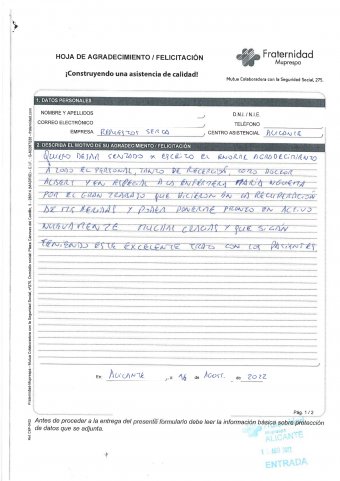 HOJA DE AGRADECIMIENTO / FELICITACIÓN
¡Construyendo una asistencia de calidad!
Fraternidad
Muprespa
Mutua Colaboradora con la Seguridad Social, 275.
1. DATOS PERSONALES
NOMBRE Y APELLIDOS
D.N.I. / N.I.E.
CORREO ELECTRÓNICO
TELÉFONO
EMPRESA REPUESTOS SERCA
CENTRO ASISTENCIAL ALICANTE
2. DESCRIBA EL MOTIVO DE SU AGRADECIMIENTO / FELICITACIÓN
QUIERO DEJAR SENTADO X ESCRITO EL ENORME AGRADECIMIENTO
A TODO EL PERSONAL, TANTO DE RECEPCIÓN, COMO DOCTOR
ALBERT Y EN ESPECIAL A LA ENFERMERA MARIA
POR EL GRAN TRABAJO QUE HICIERON EN LA RECUPERACIÓN
DE MIS HERIDAS Y PODER PONERME PRONTO EN ACTIVO
NUEVAMENTE MUCHAS GRACIAS Y QUE SIGAN
TENIENDO ESTE EXCELENTE TRATO CON LOS PACIENTES
En ALICANTE, a de AGOST. de 2022
Pág. 1 / 2
Antes de proceder a la entrega del presente formulario debe leer la información básica sobre protección
de datos que se adjunta.
Fraternidad
Muprespa
ALICANTE
ENTRADA